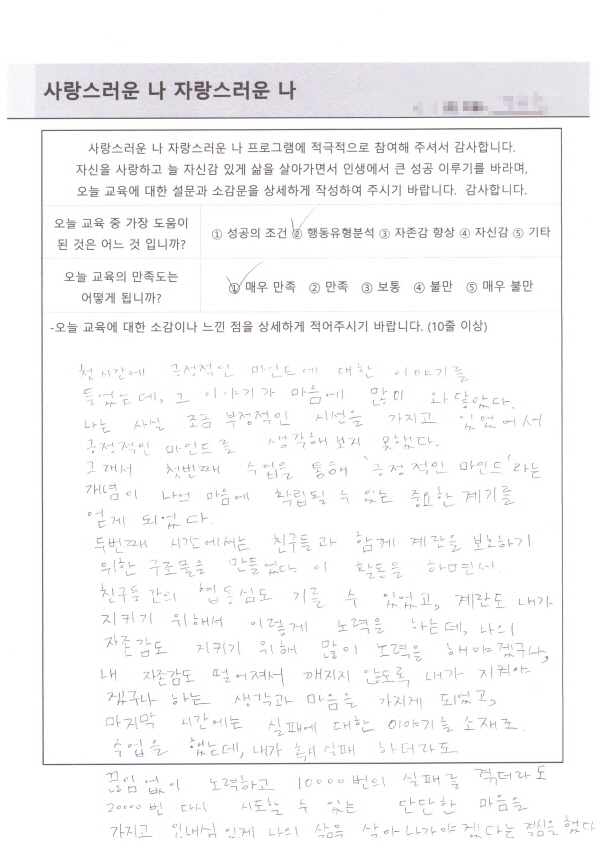 사랑스러운 나 자랑스러운 나
사랑스러운 나 자랑스러운 나 프로그램에 적극적으로 참여해 주셔서 감사합니다.
자신을 사랑하고 늘 자신감 있게 삶을 살아가면서 인생에서 큰 성공 이루기를 바라며,
오늘 교육에 대한 설문과 소감문을 상세하게 작성하여 주시기 바랍니다. 감사합니다.
오늘 교육 중 가장 도움이
된 것은 어느 것 입니까?
① 성공의 조건 ② 행동유형분석 ③ 자존감 향상 ④ 자신감 ⑤ 기타
오늘 교육의 만족도는
어떻게 됩니까?
① 매우 만족 ② 만족 ③ 보통 ④ 불만 ⑤ 매우 불만
-오늘 교육에 대한 소감이나 느낀 점을 상세하게 적어주시기 바랍니다. (10줄 이상)
첫시간에 긍정적인 마인드에 대한 이야기를
들었는데, 그 이야기가 마음에 많이 와닿았다.
나는 사실 조금 부정적인 시선을 가지고 있었어서
긍정적인 마인드를 생각해 보지 못했다.
그래서 첫번째 수업을 통해 '긍정적인 마인드'라는
개념이 나의 마음에 확립될 수 있는 중요한 계기를
얻게 되었다.
두번째 시간에서는 친구들과 함께 계란을 보호하기
위한 구조물을 만들었다. 이 활동을 하면서
친구들간의 협동심도 기를 수 있었고, 계란도 내가
지키기 위해서 이렇게 노력을 하는데, 나의
자존감도 지키기 위해 많이 노력을 해야겠구나,
내 자존감도 떨어져서 깨지지 않도록 내가 지켜야
겠구나 하는 생각과 마음을 가지게 되었고,
마지막 시간에는 실패에 대한 이야기를 소재로
수업을 했는데, 내가 혹시 실패 하더라도
끊임없이 노력하고 10000번의 실패를 겪더라도
20000번 다시 시도할 수 있는 단단한 마음을
가지고 인내심 있게 나의 삶을 살아나가야겠다는 결심을 했다